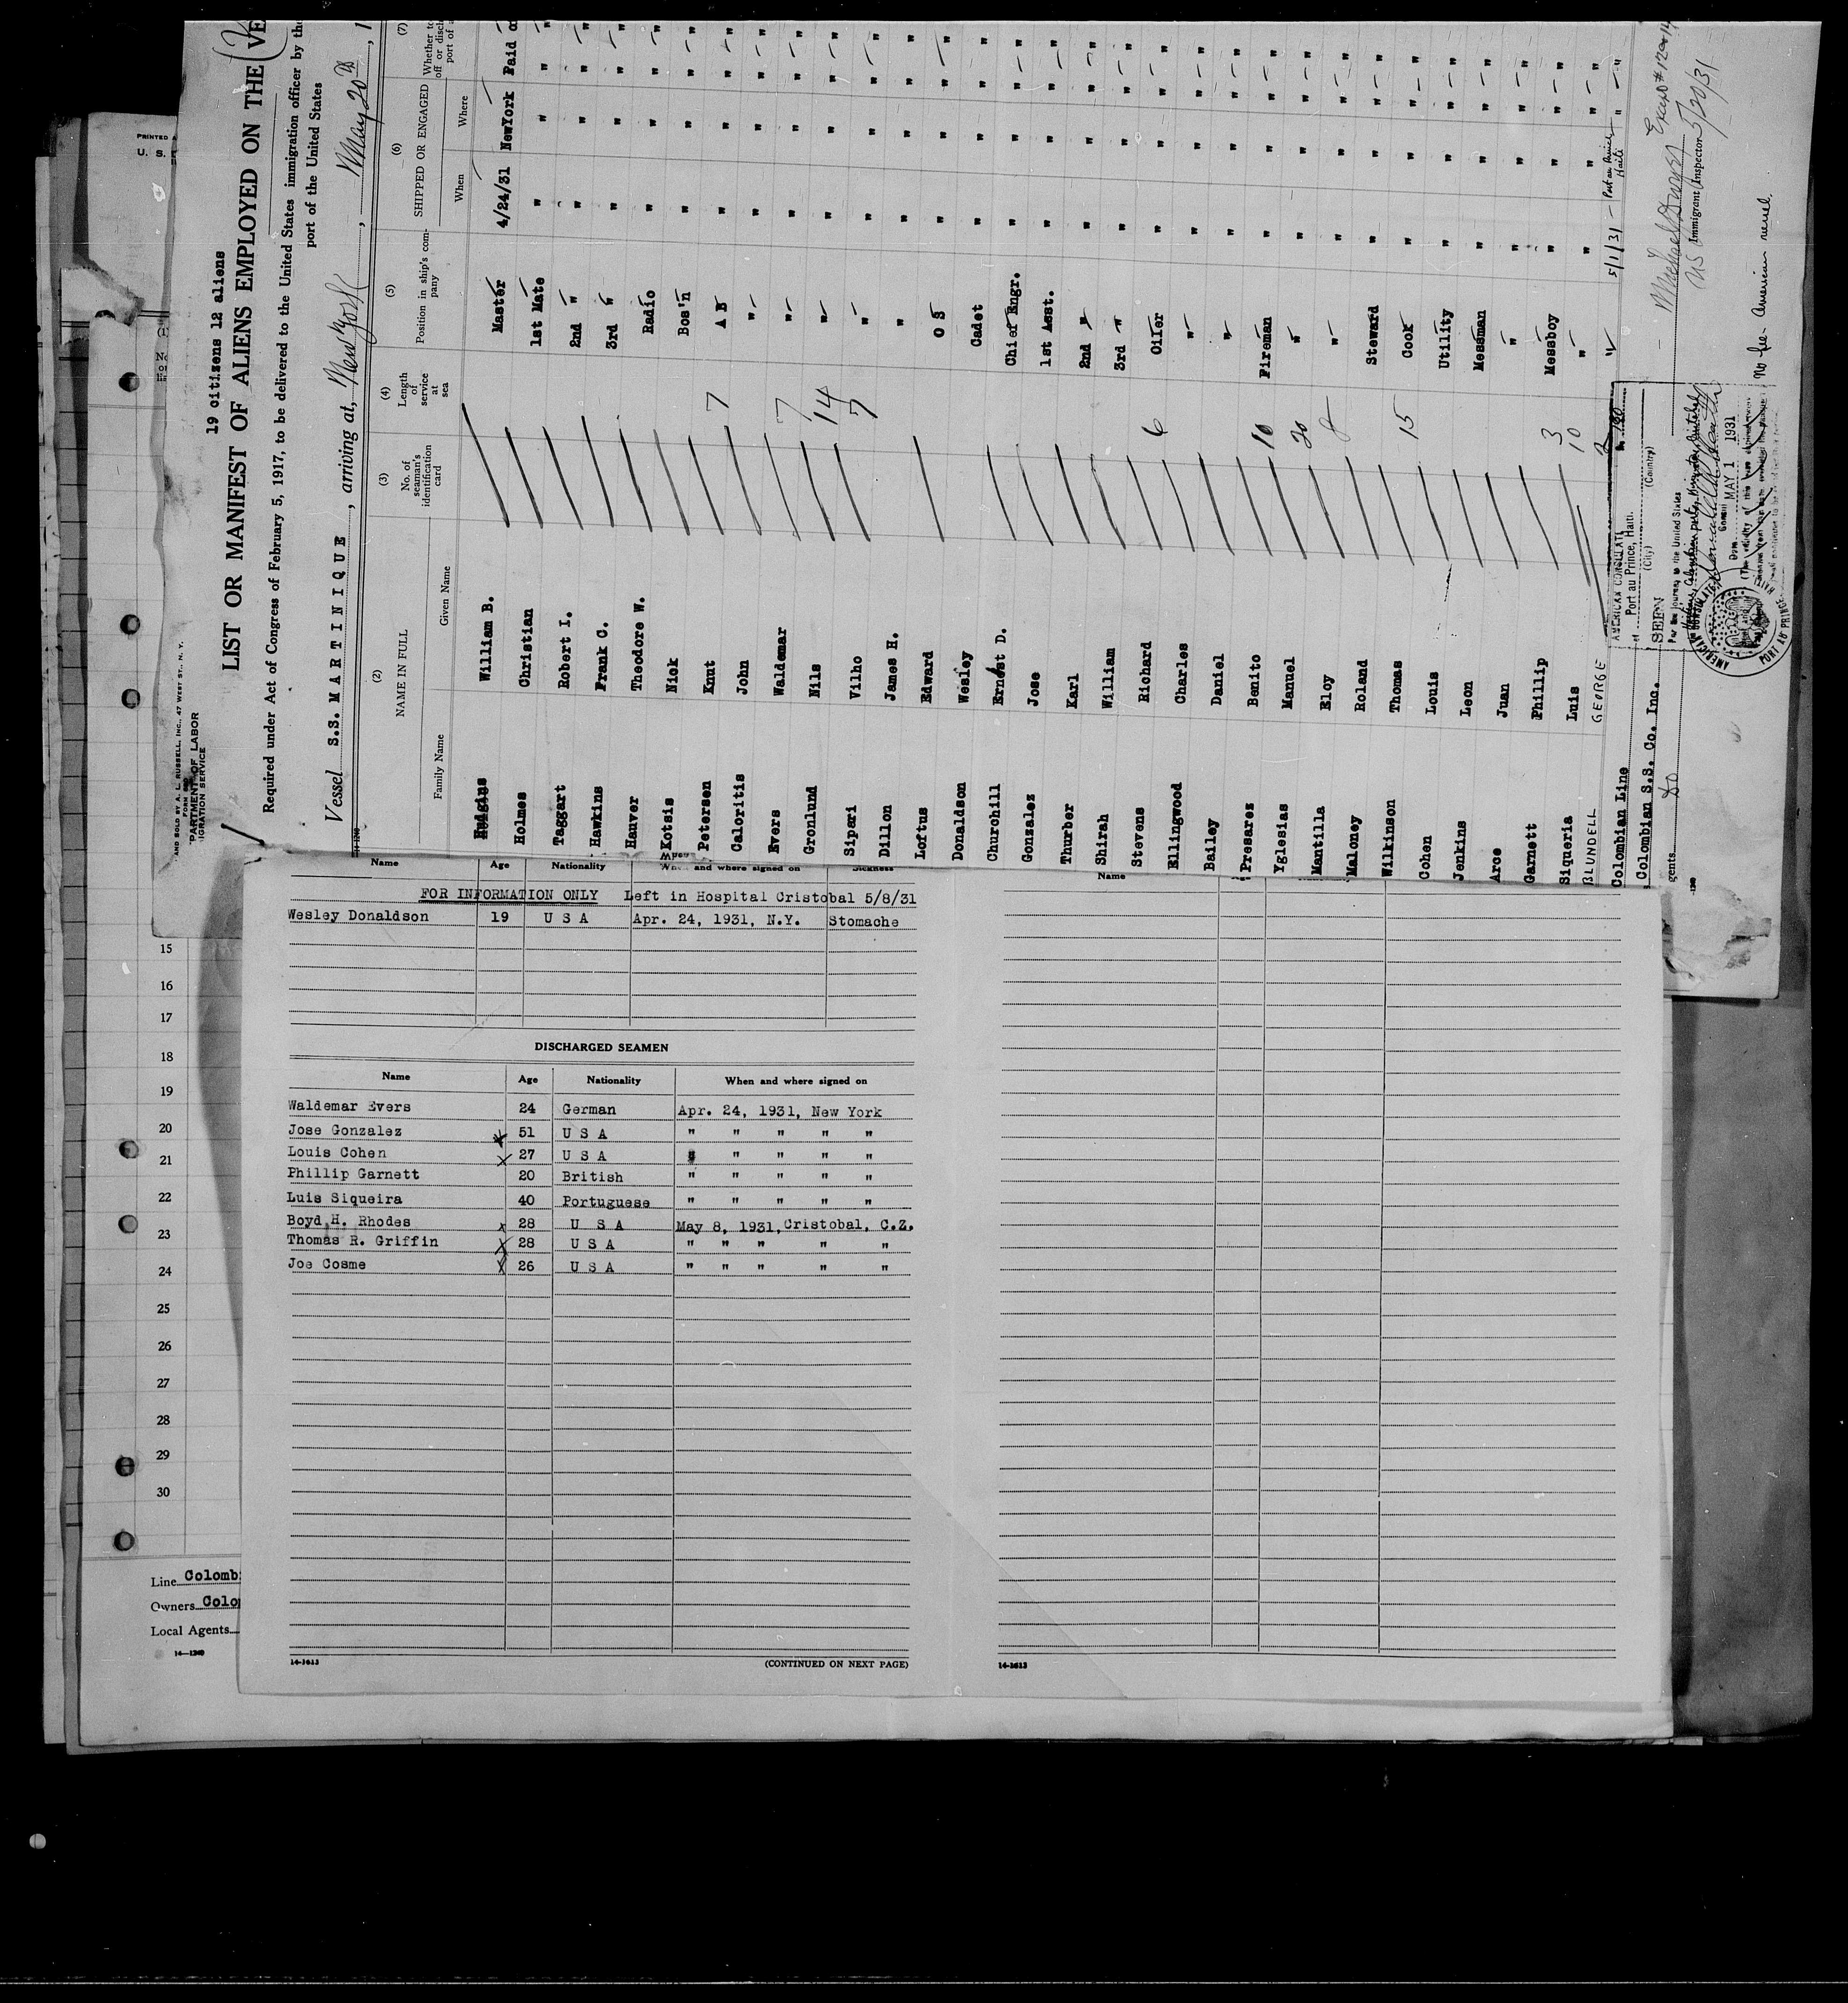 PRINTED A
U. S.
AND SOLD BY A. L. RUSSELL, INC., 47 WEST ST., N. Y.
PARTMENT OF LABOR
IGRATION SERVICE
19 citizens 12 aliens
LIST OR MANIFEST OF ALIENS EMPLOYED ON THE VE
Required under Act of Congress of February 5, 1917, to be delivered to the United States immigration officer by the
port of the United States
Vessel S.S. MARTINIQUE, arriving at, New York, May 20th, 1
(2) (3) (4) (5) (6) (7)
NAME IN FULL No. of seaman's identification card Length of service at sea Position in ship's company SHIPPED OR ENGAGED Whether to
Family Name Given Name When Where
Hudgins William B. Master 4/24/31 NewYork Paid o
Holmes Christian 1st Mate " " " "
Taggart Robert I. 2nd " " " " "
Hawkins Frank C. 3rd " " " " "
Hauver Theodore W. Radio " " " "
Kotsis Nick Bos'n " " " "
Petersen Knut 7 A B " " " "
Caloritis John " " " " "
Evers Waldemar 7 " " " " "
Gronlund Nils 14 " " " " "
Sipari Vilho 7 " " " " "
Dillon James H. " " " " "
Loftus Edward O S " " " "
Donaldson Wesley Cadet " " " "
Churchill Ernest D. Chief Engr. " " " "
Gonzalez Jose 1st Asst. " " " "
Thurber Karl 2nd " " " " "
Shirah William 3rd " " " " "
Stevens Richard 6 Oiler " " " "
Ellingwood Charles " " " " "
Bailey Daniel " " " " "
Presarez Benito 10 Fireman " " " "
Yglesias Manuel 20 " " " " "
Mantilla Eloy 8 " " " " "
Maloney Roland Steward " " " "
Wilkinson Thomas 15 Cook " " " "
Cohen Louis Utility " " " "
Jenkins Leon Messman " " " "
Arce Juan " " " " "
Garnett Phillip 3 Messboy " " " "
Siqueria Luis 10 " " " " "
BLUNDELL GEORGE " 5/1/31 - Port au Prince Haiti " "
Colombian Line
Colombian S.S. Co. Inc.
gents do
AMERICAN CONSULATE
of Port au Prince, Haiti.
(City) (Country)
SEEN
For the journey to the United States
Date MAY 1 1931
Consul
AMERICAN CONSULATE
PORT AU PRINCE HAITI
No fee - American vessel.
US Immigrant Inspector 5/20/31
Name Age Nationality When and where signed on Sickness
FOR INFORMATION ONLY Left in Hospital Cristobal 5/8/31
Wesley Donaldson 19 U S A Apr. 24, 1931, N.Y. Stomache
DISCHARGED SEAMEN
Name Age Nationality When and where signed on
Waldemar Evers 24 German Apr. 24, 1931, New York
Jose Gonzalez x 51 U S A " " " " "
Louis Cohen x 27 U S A " " " " "
Phillip Garnett 20 British " " " " "
Luis Siqueira 40 Portuguese " " " " "
Boyd H. Rhodes x 28 U S A May 8, 1931, Cristobal, C.Z.
Thomas R. Griffin x 28 U S A " " " " "
Joe Cosme x 26 U S A " " " " "
14-1613
(CONTINUED ON NEXT PAGE)
Name
14-1613
15
16
17
18
19
20
21
22
23
24
25
26
27
28
29
30
Line Colomb
Owners Colo
Local Agents
14-1240